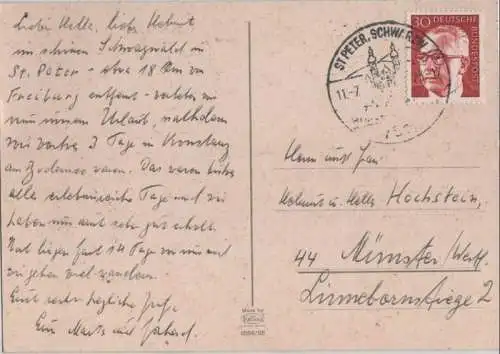 Liebe Helle, lieber Helmut
im schönen Schwarzwald in
St. Peter - etwa 18 km von
Freiburg entfernt - verleben wir
nun unseren Urlaub, nachdem
wir vorher 3 Tage in Konstanz
am Bodensee waren. Das waren
alle erlebnisreiche Tage und wir
haben uns sehr gut erholt.
liegen fast 14 Tage vor uns und
wir gehen viel wandern.
Euch recht herzliche Grüße
Eure und
ST. PETER, SCHWARZW
11.-7.
30 DEUTSCHE
BUNDESPOST
Herrn und Frau
Helmut u. Helle Hochstein,
44 Münster/Westf.
Linnebornstiege 2